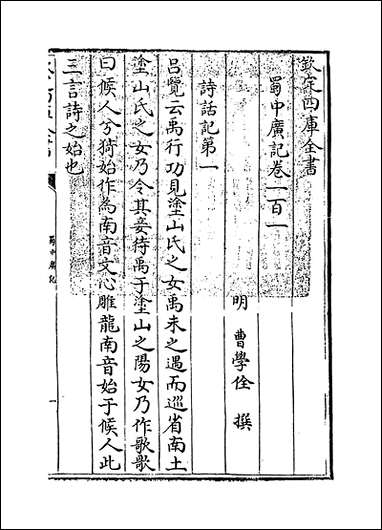 欽定四庫全書
蜀中廣記卷一百一
明　曹學佺　撰
詩話記第一
呂覽云禹行功見塗山氏之女禹未之遇而巡省南土
塗山氏之女乃令其妾待禹于塗山之陽女乃作歌歌
曰候人兮猗始作為南音文心雕龍南音始于候人此
三言詩之始也
蜀中廣記
一